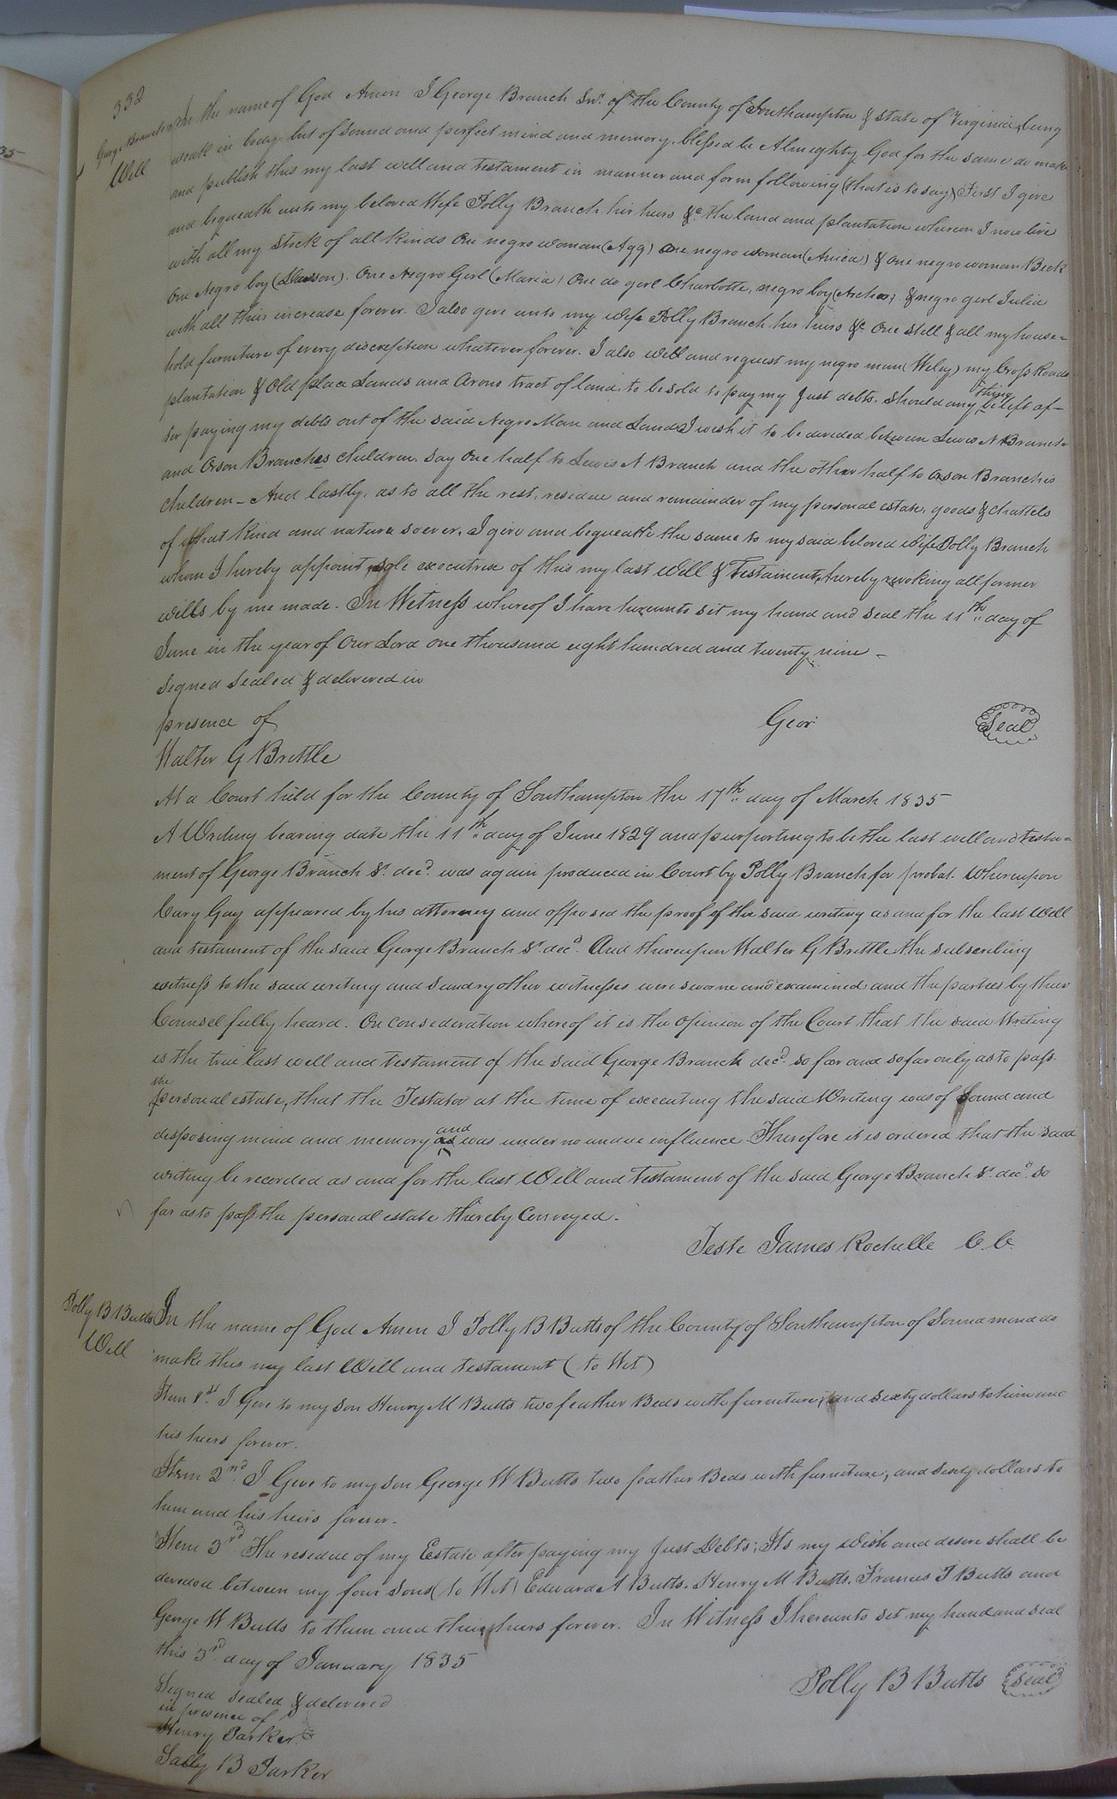 332
George Branch
Will
In the name of God Amen I George Branch Snr. of the County of Southampton & State of Virginia, being
weak in body but of sound and perfect mind and memory, blessed be Almighty God for the same do make
and publish this my last will and testament in manner and form following (that is to say) First I give
and bequeath unto my beloved Wife Polly Branch her heirs &c the land and plantation whereon I now live
with all my Stock of all kinds One negro woman (Agg) One negro woman (Anica) & One negro woman Beck
One Negro boy (Dawson). One Negro Girl (Maria) One do girl Charlotte, negro boy (Archer) & negro girl Julia
with all their increase forever. I also give unto my Wife Polly Branch, her heirs &c One Still & all my house-
hold furniture of every discription whatever forever. I also will and request my negro man (Wiley) my Cross Roads
plantation & Old place Lands and Arons tract of land, to be sold to pay my just debts. Should any thing be left af-
ter paying my debts out of the said Negro Man and Lands I wish it to be devided between Lewis A Branch
and Orson Branches children. Say One half to Lewis A Branch and the other half to Orson Branch's
Children - And lastly, as to all the rest, residue and remainder of my personal estate, goods & chattels
of what kind and nature soever, I give and bequeath the same to my said beloved Wife Polly Branch
whom I hereby appoint sole executrix of this my last Will & Testament, hereby revoking all former
wills by me made. In Witness whereof I have hereunto set my hand and seal the 11th day of
June in the year of Our Lord one thousand eight hundred and twenty nine -
Signed Sealed & delivered in
presence of Geor Seal
Walter G Brittle
At a Court held for the County of Southampton the 17th day of March 1835
A Writing bearing date the 11th day of June 1829 and purporting to be the last will and testa-
ment of George Branch Sr. decd. was again produced in Court by Polly Branch for probat. Whereupon
Cary Gay appeared by his attorney and opposed the proof of the said writing as and for the last Will
and testament of the said George Branch Sr. decd. And thereupon Walter G Brittle the subscribing
witness to the said writing and sundry other witnesses were sworn and examined and the parties by their
Counsel fully heard. On consideration whereof it is the Opinion of the Court that the said Writing
is the true last well and testament of the said George Branch decd. so far and so far only as to pass
the personal estate, that the Testator at the time of executing the said Writing was of Sound and
disposing mind and memory and was under no undue influence Therefore it is ordered that the said
writing be recorded as and for the last Will and Testament of the said George Branch Sr. decd. so
far as to pass the personal estate thereby Conveyed.
Teste James Rochelle C.C.
Polly B Butts
Will
In the name of God Amen I Polly B Butts of the County of Southampton of Sound mind do
make this my last Will and testament (to Wit)
Item 1st. I Give to my son Henry M Butts two feather Beds with furniture, and sixty dollars to him and
his heirs forever.
Item 2nd. I Give to my son George W Butts two feather Beds with furniture, and sixty dollars to
him and his heirs forever.
Item 3rd The residue of my Estate after paying my Just Debts; Its my Wish and desire shall be
devided between my four sons (to Wit) Edward A Butts. Henry M Butts. Francis T Butts and
George W Butts to them and their heirs forever. In Witness I hereunto set my hand and seal
this 3rd day of January 1835
Polly B Butts Seal
Signed sealed & delivered
in presence of
Henry Parker
Sally B Parker